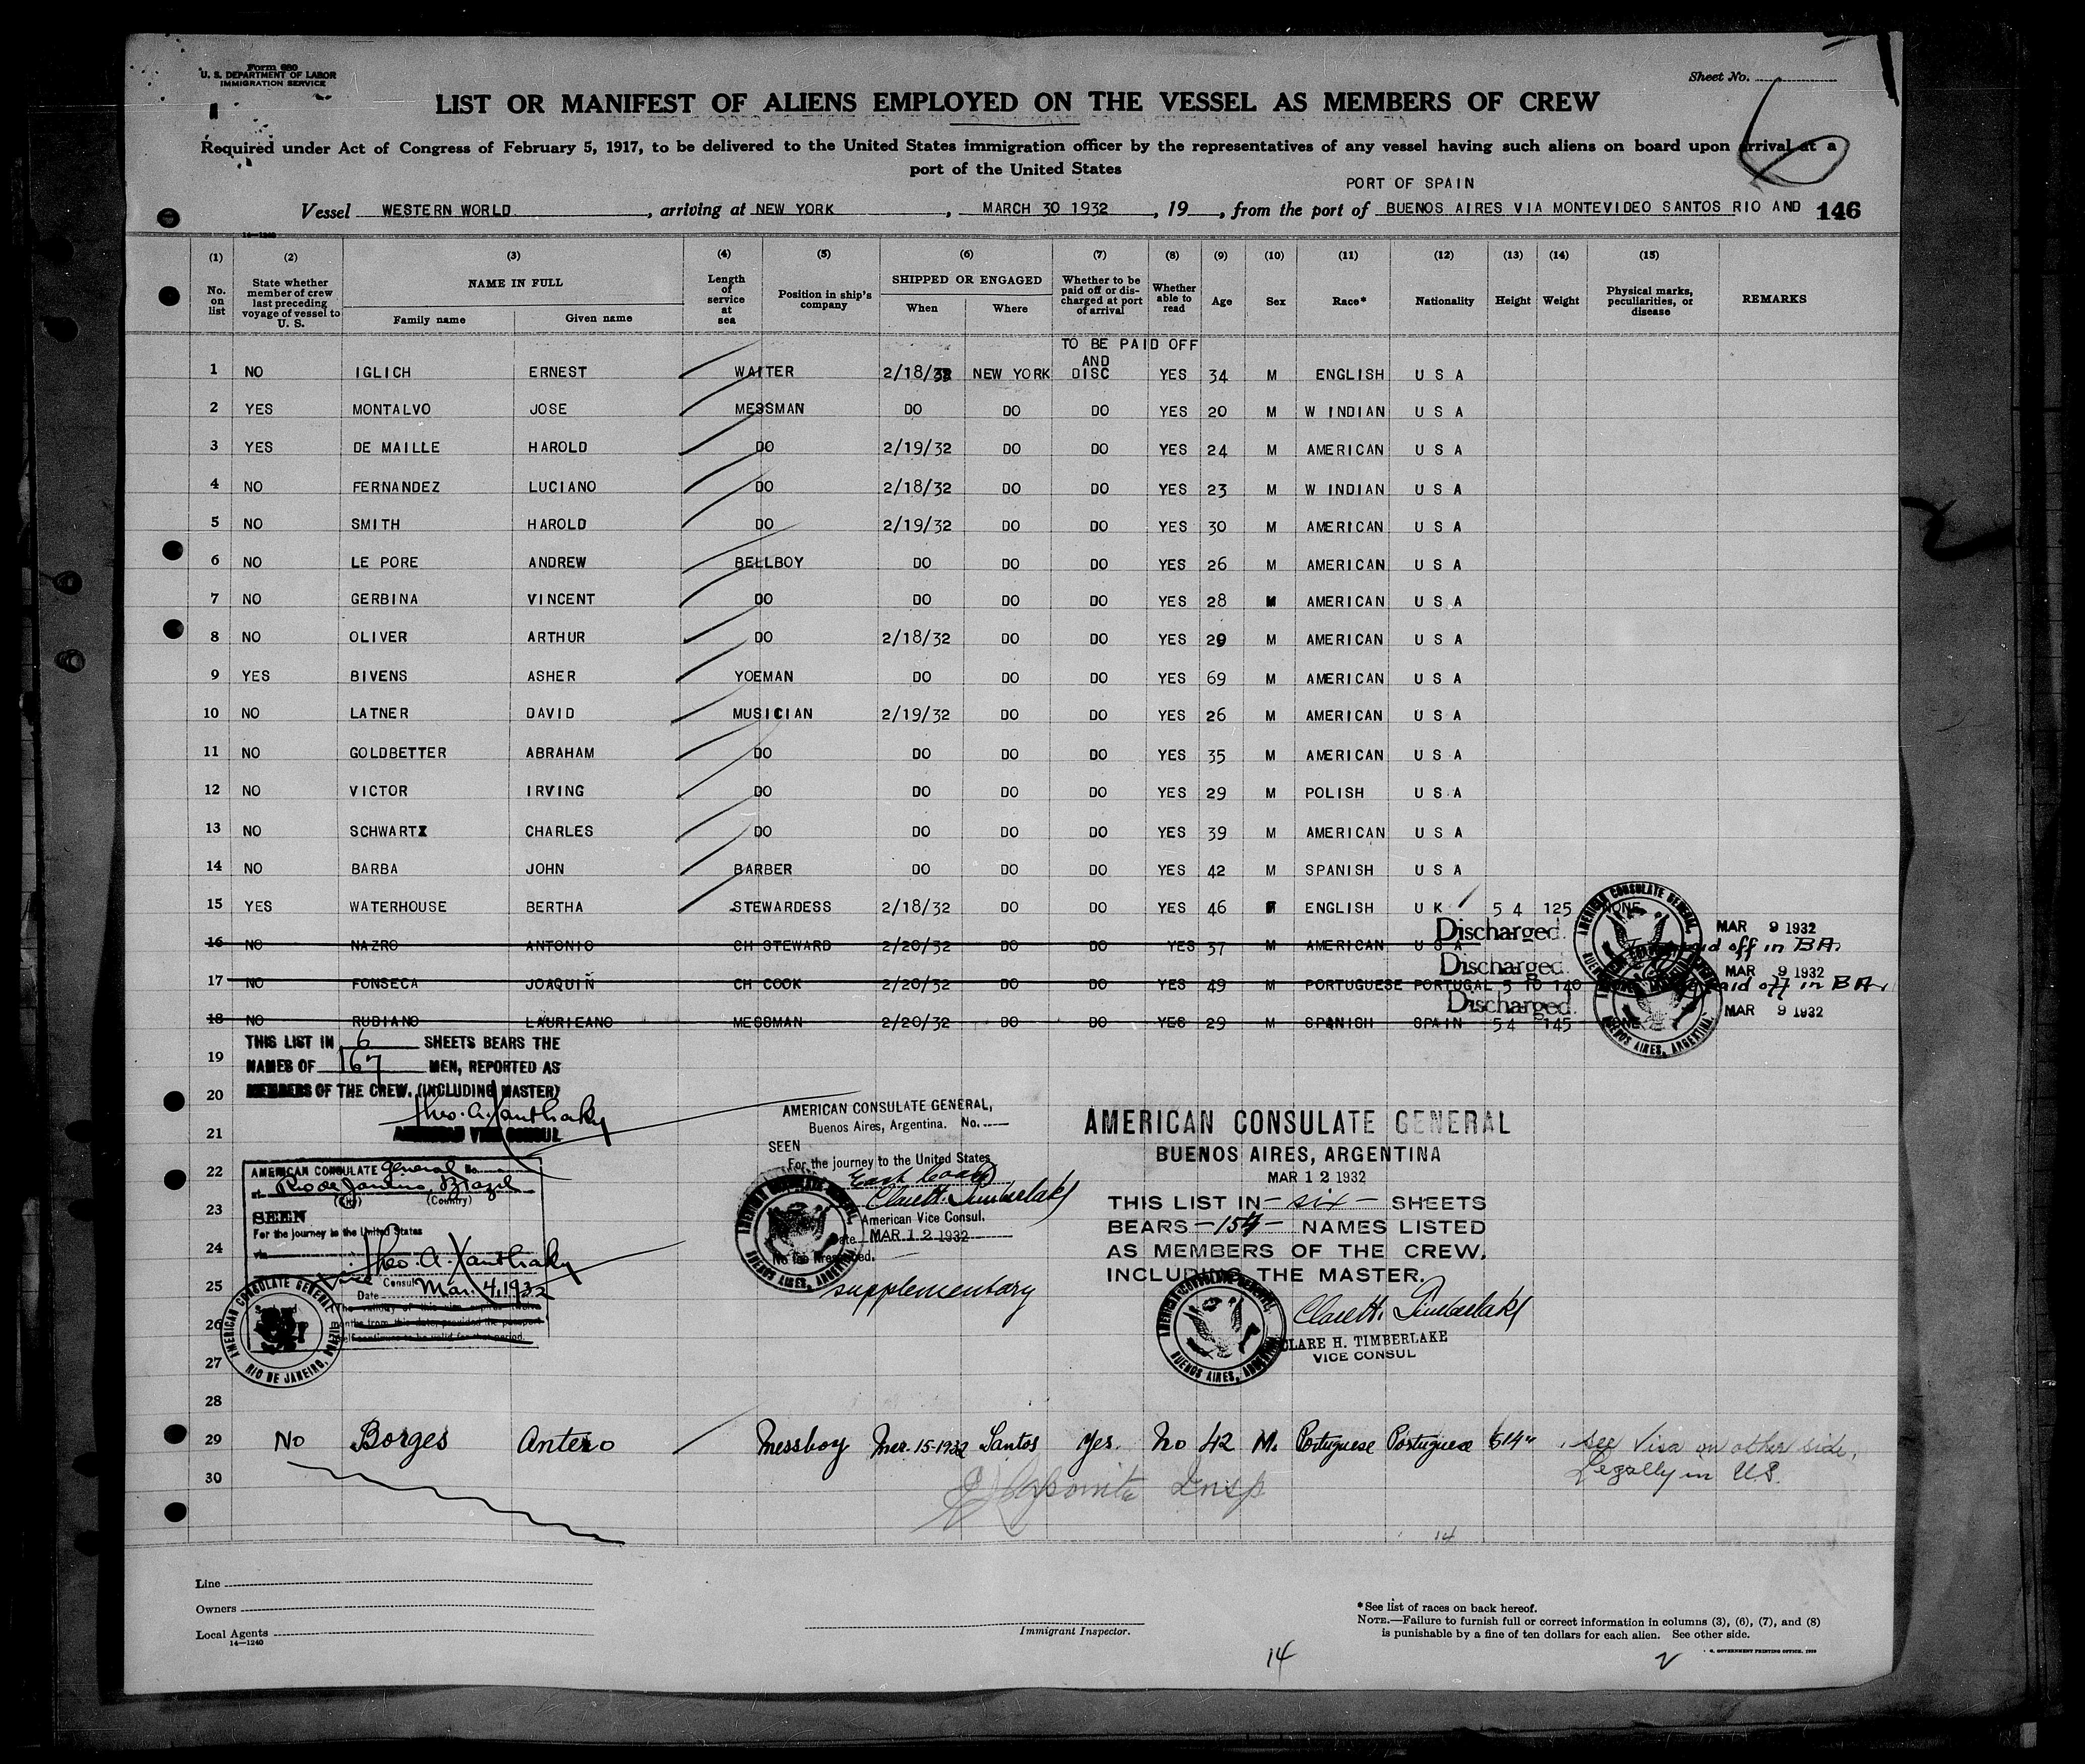 Form 680
U. S. DEPARTMENT OF LABOR
IMMIGRATION SERVICE
Sheet No.
6
LIST OR MANIFEST OF ALIENS EMPLOYED ON THE VESSEL AS MEMBERS OF CREW
Required under Act of Congress of February 5, 1917, to be delivered to the United States immigration officer by the representatives of any vessel having such aliens on board upon arrival at a
port of the United States
PORT OF SPAIN
Vessel WESTERN WORLD, arriving at NEW YORK, MARCH 30 1932, 19, from the port of BUENOS AIRES VIA MONTEVIDEO SANTOS RIO AND 146
14—1240
(1) (2) (3) (4) (5) (6) (7) (8) (9) (10) (11) (12) (13) (14) (15)
No. on list State whether member of crew last preceding voyage of vessel to U. S. NAME IN FULL Family name Given name Length of service at sea Position in ship's company SHIPPED OR ENGAGED When Where Whether to be paid off or discharged at port of arrival Whether able to read Age Sex Race* Nationality Height Weight Physical marks, peculiarities, or disease REMARKS
TO BE PAID OFF
AND
1 NO IGLICH ERNEST WAITER 2/18/32 NEW YORK DISC YES 34 M ENGLISH U S A
2 YES MONTALVO JOSE MESSMAN DO DO DO YES 20 M W INDIAN U S A
3 YES DE MAILLE HAROLD DO 2/19/32 DO DO YES 24 M AMERICAN U S A
4 NO FERNANDEZ LUCIANO DO 2/18/32 DO DO YES 23 M W INDIAN U S A
5 NO SMITH HAROLD DO 2/19/32 DO DO YES 30 M AMERICAN U S A
6 NO LE PORE ANDREW BELLBOY DO DO DO YES 26 M AMERICAN U S A
7 NO GERBINA VINCENT DO DO DO DO YES 28 M AMERICAN U S A
8 NO OLIVER ARTHUR DO 2/18/32 DO DO YES 29 M AMERICAN U S A
9 YES BIVENS ASHER YOEMAN DO DO DO YES 69 M AMERICAN U S A
10 NO LATNER DAVID MUSICIAN 2/19/32 DO DO YES 26 M AMERICAN U S A
11 NO GOLDBETTER ABRAHAM DO DO DO DO YES 35 M AMERICAN U S A
12 NO VICTOR IRVING DO DO DO DO YES 29 M POLISH U S A
13 NO SCHWARTZ CHARLES DO DO DO DO YES 39 M AMERICAN U S A
14 NO BARBA JOHN BARBER DO DO DO YES 42 M SPANISH U S A
15 YES WATERHOUSE BERTHA STEWARDESS 2/18/32 DO DO YES 46 F ENGLISH U K 5 4 125 NONE
Discharged. MAR 9 1932
16 NO NAZRO ANTONIO CH STEWARD 2/20/32 DO DO YES 37 M AMERICAN U S A paid off in BA.
Discharged. MAR 9 1932
17 NO FONSECA JOAQUIN CH COOK 2/20/32 DO DO YES 49 M PORTUGUESE PORTUGAL 5 10 140 paid off in BA.
Discharged. MAR 9 1932
18 NO RUBIANO LAURIEANO MESSMAN 2/20/32 DO DO YES 29 M SPANISH SPAIN 5 4 145 NONE
AMERICAN CONSULATE GENERAL, BUENOS AIRES, ARGENTINA
THIS LIST IN 6 SHEETS BEARS THE
19 NAMES OF 167 MEN, REPORTED AS
20 MEMBERS OF THE CREW. (INCLUDING MASTER)
Theo. A. Xanthaky
21 AMERICAN VICE CONSUL
22 AMERICAN CONSULATE General No.
at Rio de Janeiro, Brazil
(City) (Country)
23 SEEN
For the journey to the United States
24 via
Theo. A. Xanthaky
Vice Consul
25 Date Mar. 4, 1932
26 The validity of this visa expires twelve
months from this date, provided the passport
itself continues to be valid for that period.
AMERICAN CONSULATE GENERAL RIO DE JANEIRO, BRAZIL
27
28
AMERICAN CONSULATE GENERAL,
Buenos Aires, Argentina. No.
SEEN
For the journey to the United States
East Coast
Clare H. Timberlake
American Vice Consul.
Date MAR 12 1932
No fee prescribed.
AMERICAN CONSULATE GENERAL, BUENOS AIRES, ARGENTINA
supplementary
AMERICAN CONSULATE GENERAL
BUENOS AIRES, ARGENTINA
MAR 12 1932
THIS LIST IN six SHEETS
BEARS 154 NAMES LISTED
AS MEMBERS OF THE CREW,
INCLUDING THE MASTER.
Clare H. Timberlake
CLARE H. TIMBERLAKE
VICE CONSUL
AMERICAN CONSULATE GENERAL, BUENOS AIRES, ARGENTINA
29 No Borges Antero Messboy Mar. 15-1932 Santos Yes. No 42 M. Portuguese Portuguese see Visa on other side.
Legally in US.
30
Insp
14
Line
Owners
Local Agents
14—1240
Immigrant Inspector.
*See list of races on back hereof.
NOTE.—Failure to furnish full or correct information in columns (3), (6), (7), and (8)
is punishable by a fine of ten dollars for each alien. See other side.
14
2